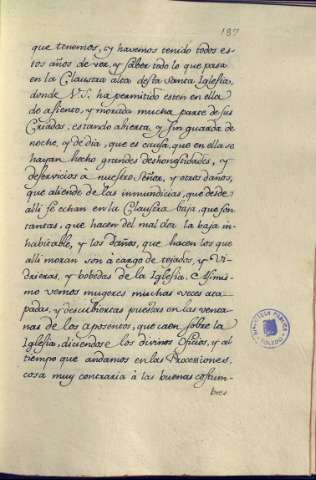 187
que tenemos, y havemos tenido todos es-
tos años de ver, y saber todo lo que pasa
en la Claustra alta desta Santa Iglesia,
donde V.S. ha permitido esten en ella
de asiento, y morada mucha parte de sus
Criados, estando abierta, y sin guarda de
noche, y de dia, que es causa, que en ella se
hayan hecho grandes deshonestidades, y
deservicios à nuestro Señor, y otros daños,
que aliende de las inmundicias, que desde
alli se echan en la Claustra baja, que son
tantas, que hacen del mal olor la baja in-
habitable, y los daños, que hacen los que
alli moran son à cargo de tejados, y Vi-
drieras, y bobedas de la Iglesia. Asimis-
mo vemos mugeres muchas veces ata-
padas, y descubiertas puestas en las venta-
nas de los aposentos, que caen sobre la
Iglesia, diciendose los divinos Oficios, y al
tiempo que andamos en las Procesiones,
cosa muy contraria à las buenas costum-
bres
BIBLIOTECA PUBLICA
TOLEDO